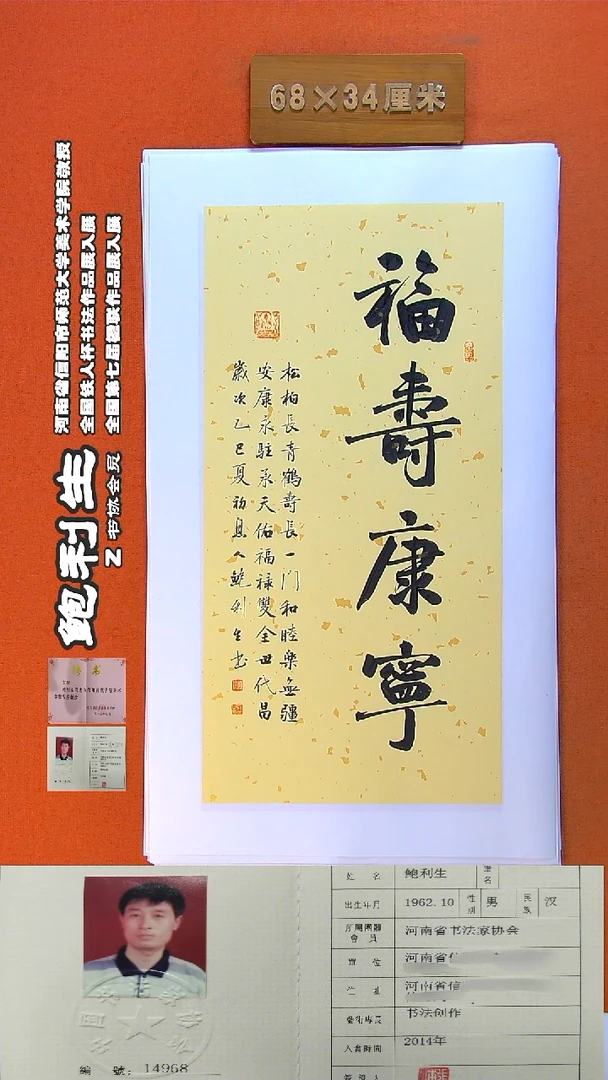 68×34厘米
福壽康寧
松柏長青鶴壽長一门和睦樂無疆
安康永駐承天佑福禄雙全世代昌
歲次乙巳夏初息人鲍利生书
鲍利生
书协会员
河南省信阳市师范大学美术学院教授
全国铁人杯书法作品展入展
全国第七届楹联作品展入展
聘书
姓名 鲍利生
出生年月 1962.10 性别 男 民族 汉
所屬團體會員 河南省书法家协会
河南省
河南省信
书法创作
入會時間 2014年
編號：14968